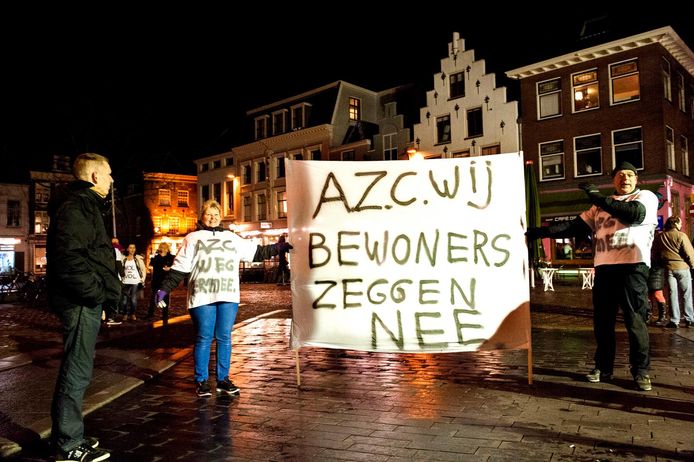 A.Z.C. WIJ
BEWONERS
ZEGGEN
NEE
A.Z.C.
WEG
ERMEE.